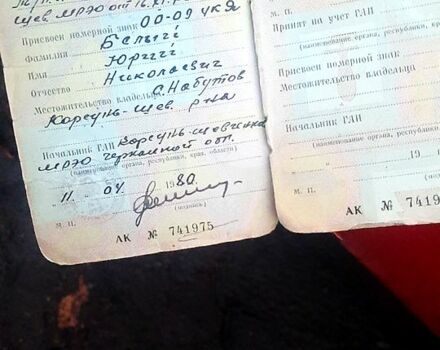 Присвоен номерной знак 00-09 УКЯ
Фамилия Белый
Имя Юрий
Отчество Николаевич
Местожительство владельца с. Набутов
Корсунь-Шев. р-на
Начальник ГАИ Корсунь-Шевченк
МРЭО Черкасской обл.
(наименование органа, республики, края, области)
11. 04 1980.
М. П. (подпись)
АК № 741975
М. П.
Принят на учет ГАИ
(наименование органа, республики,
Присвоен номерной знак
Фамилия
Имя
Отчество
Местожительство владельца
Начальник ГАИ
(наименование органа, республики, края,
19
М. П. (подпись)
АК № 74197